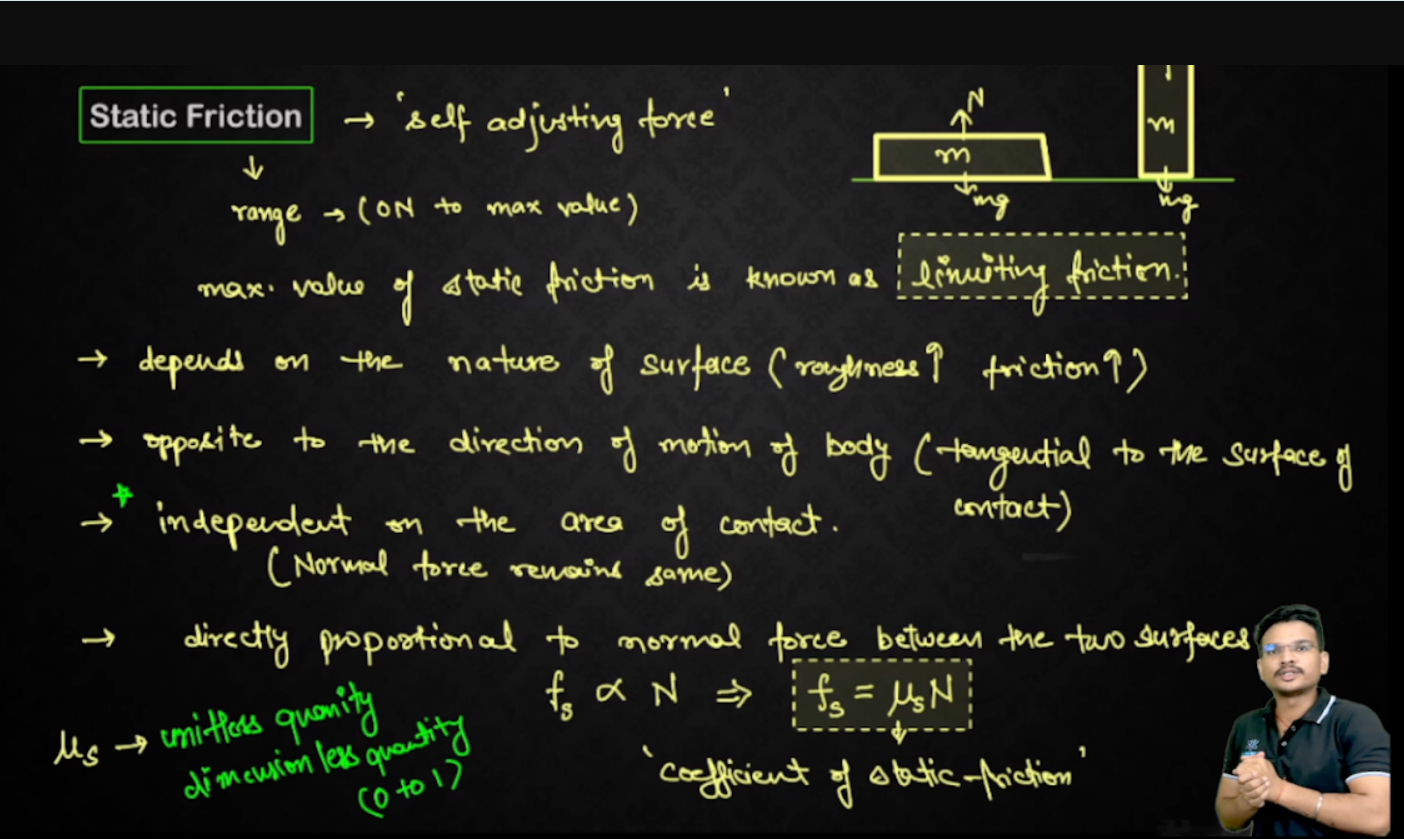 Static Friction → 'self adjusting force'
N
m
m
mg
mg
↓
range → (0N to max value)
max. value of static friction is known as limiting friction.
→ depends on the nature of surface (roughness↑ friction↑)
→ opposite to the direction of motion of body (tangential to the surface of
contact)
★
→ independent on the area of contact.
(Normal force remains same)
→ directly proportional to normal force between the two surfaces
fs ∝ N ⇒ fs = μsN
μs → unitless quantity
dimensionless quantity
(0 to 1)
↓
'coefficient of static-friction'